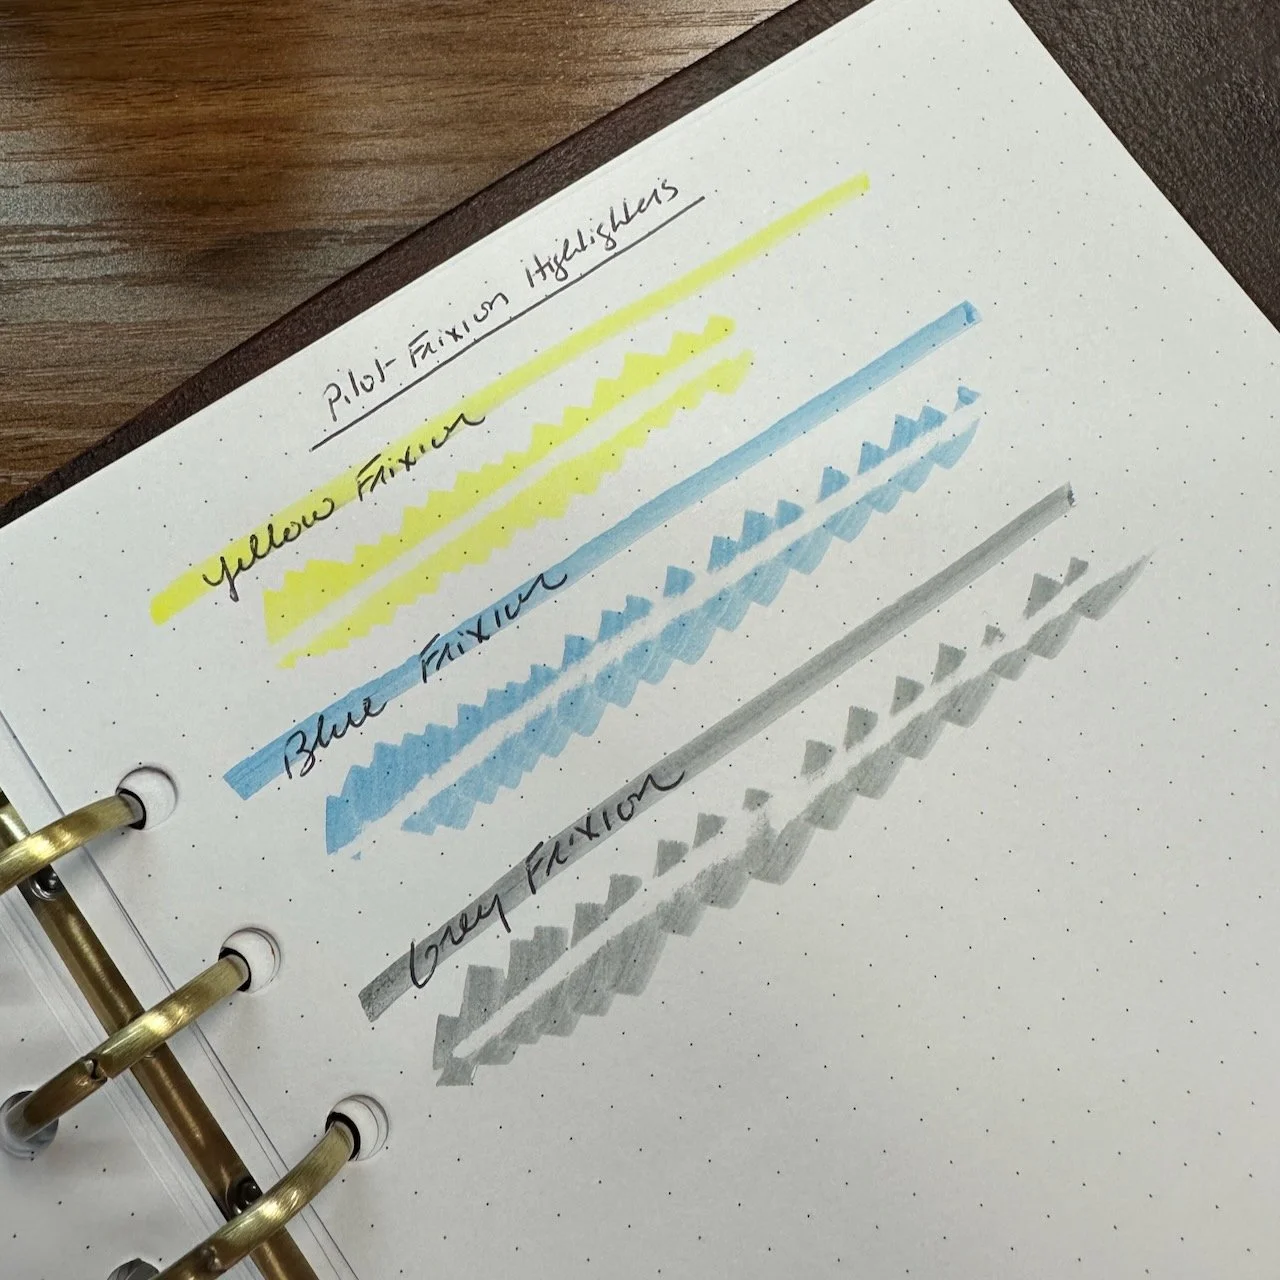 Pilot Frixion Highlighters
Yellow Frixion
Blue Frixion
Grey Frixion